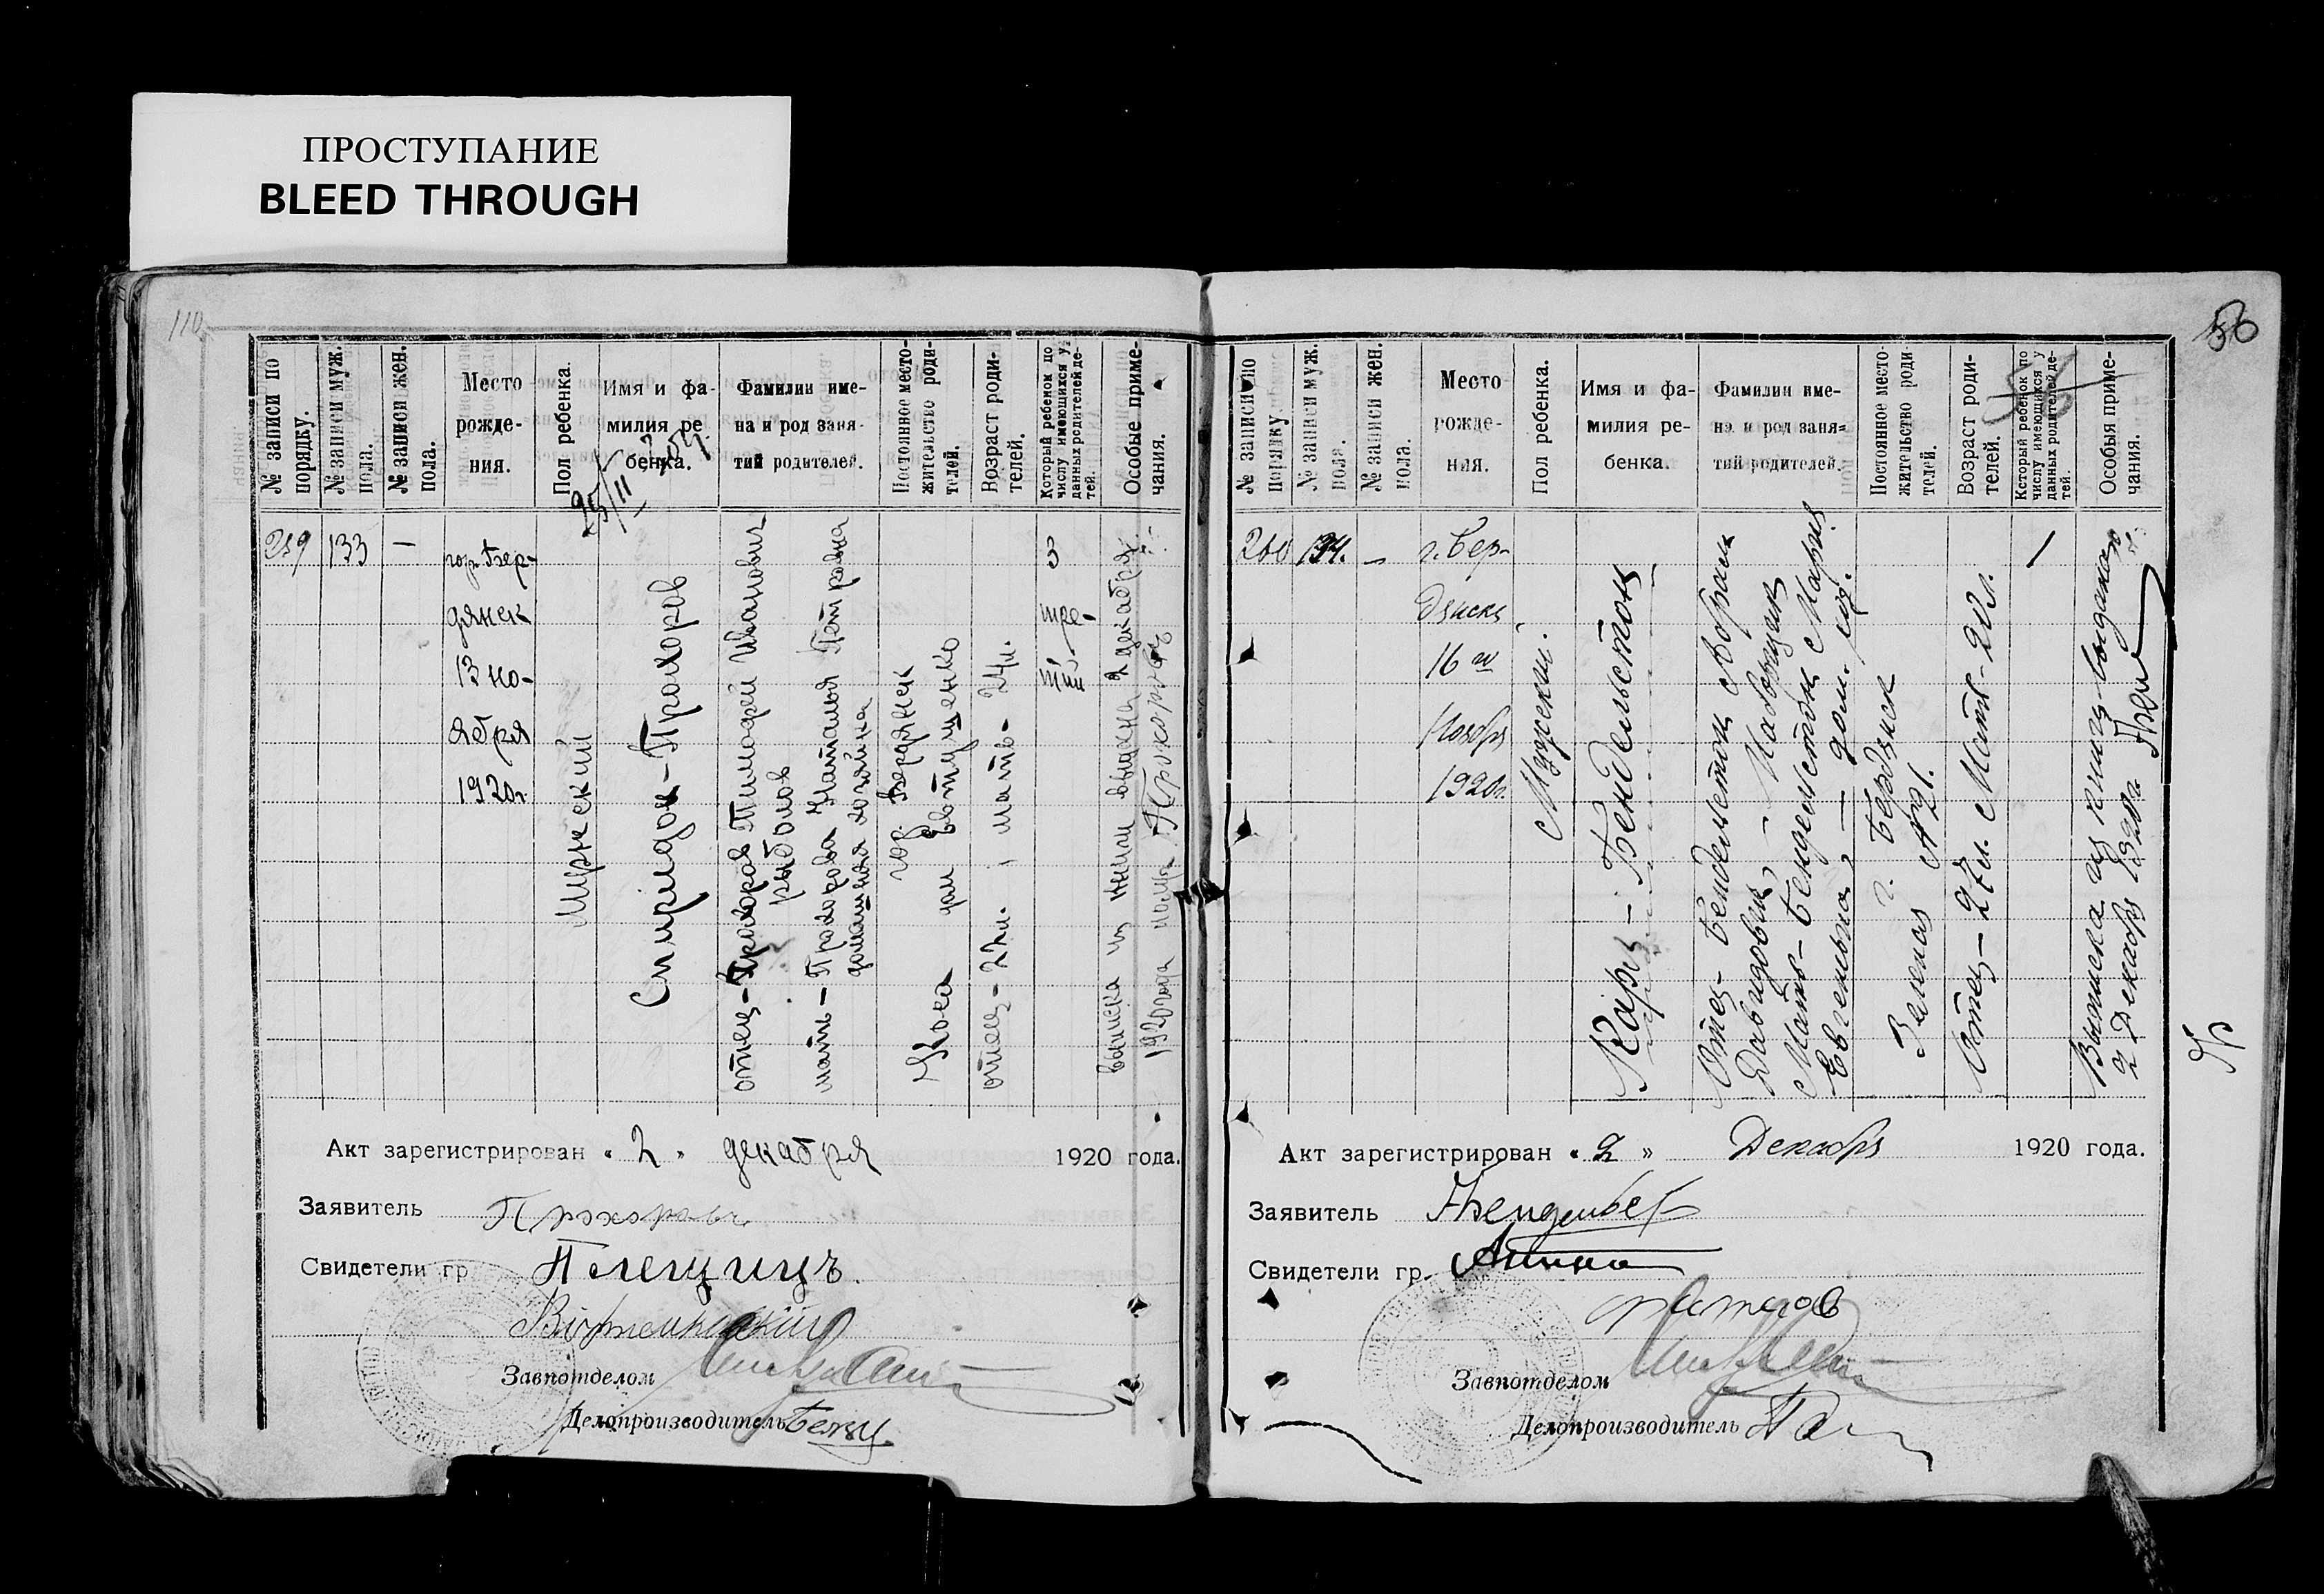 ПРОСТУПАНИЕ
BLEED THROUGH
110
№ записи по порядку.
№ записи муж. пола.
№ записи жен. пола.
Место рожде-
ния.
Пол ребенка.
Имя и фа-
милия ре
бенка.
Фамилии име-
на и род заня-
тий родителей.
Постоянное место-
жительство роди-
телей.
Возраст роди-
телей.
Который ребенок по
числу имеющихся у
данных родителей де-
тей.
Особые приме-
чания.
25/II
259
133
—
гор. Бер-
дянск
13 но-
ября
1920г
Мужский
Спиридон-Прохоров
отец-Прохоров Тимофей Иванович
рыболов
мать-Прохорова Наталья Петровна
домашняя хозяйка
гор. Бердянск
Коса дом Евтушенко
отец-27л. мать-24л.
3
тре-
тий
выписка из книги выдана 2 декабря
1920 года
Акт зарегистрирован « 2 » декабря 1920 года.
Заявитель Прохоровъ
Свидетели гр.
Завпотделом
Делопроизводитель
56
№ записи по
порядку
№ записи муж.
пола.
№ записи жен.
пола.
Место
рожде-
ния.
Пол ребенка.
Имя и фа-
милия ре-
бенка.
Фамилии име-
на и род заня-
тий родителей.
Постоянное место-
жительство роди-
телей.
Возраст роди-
телей.
Который ребенок по
числу имеющихся у
данных родителей де-
тей.
Особыя приме-
чания.
260
134.
—
г. Бер-
дянск
16 го
Ноября
1920г.
Мужский.
Карл - Бендельстон
Отец- Бендельстон Абрам
Давидович,
Мать- Бендельстон Мария
Евгеньевна, — дом. хоз.
г. Бердянск
Зеленая №21.
Отец-27л. Мать-20л.
1
Выписка из книги выдана
2 Декабря 1920г.
Акт зарегистрирован « 2 » Декабря 1920 года.
Заявитель
Свидетели гр.
Завпотделом
Делопроизводитель